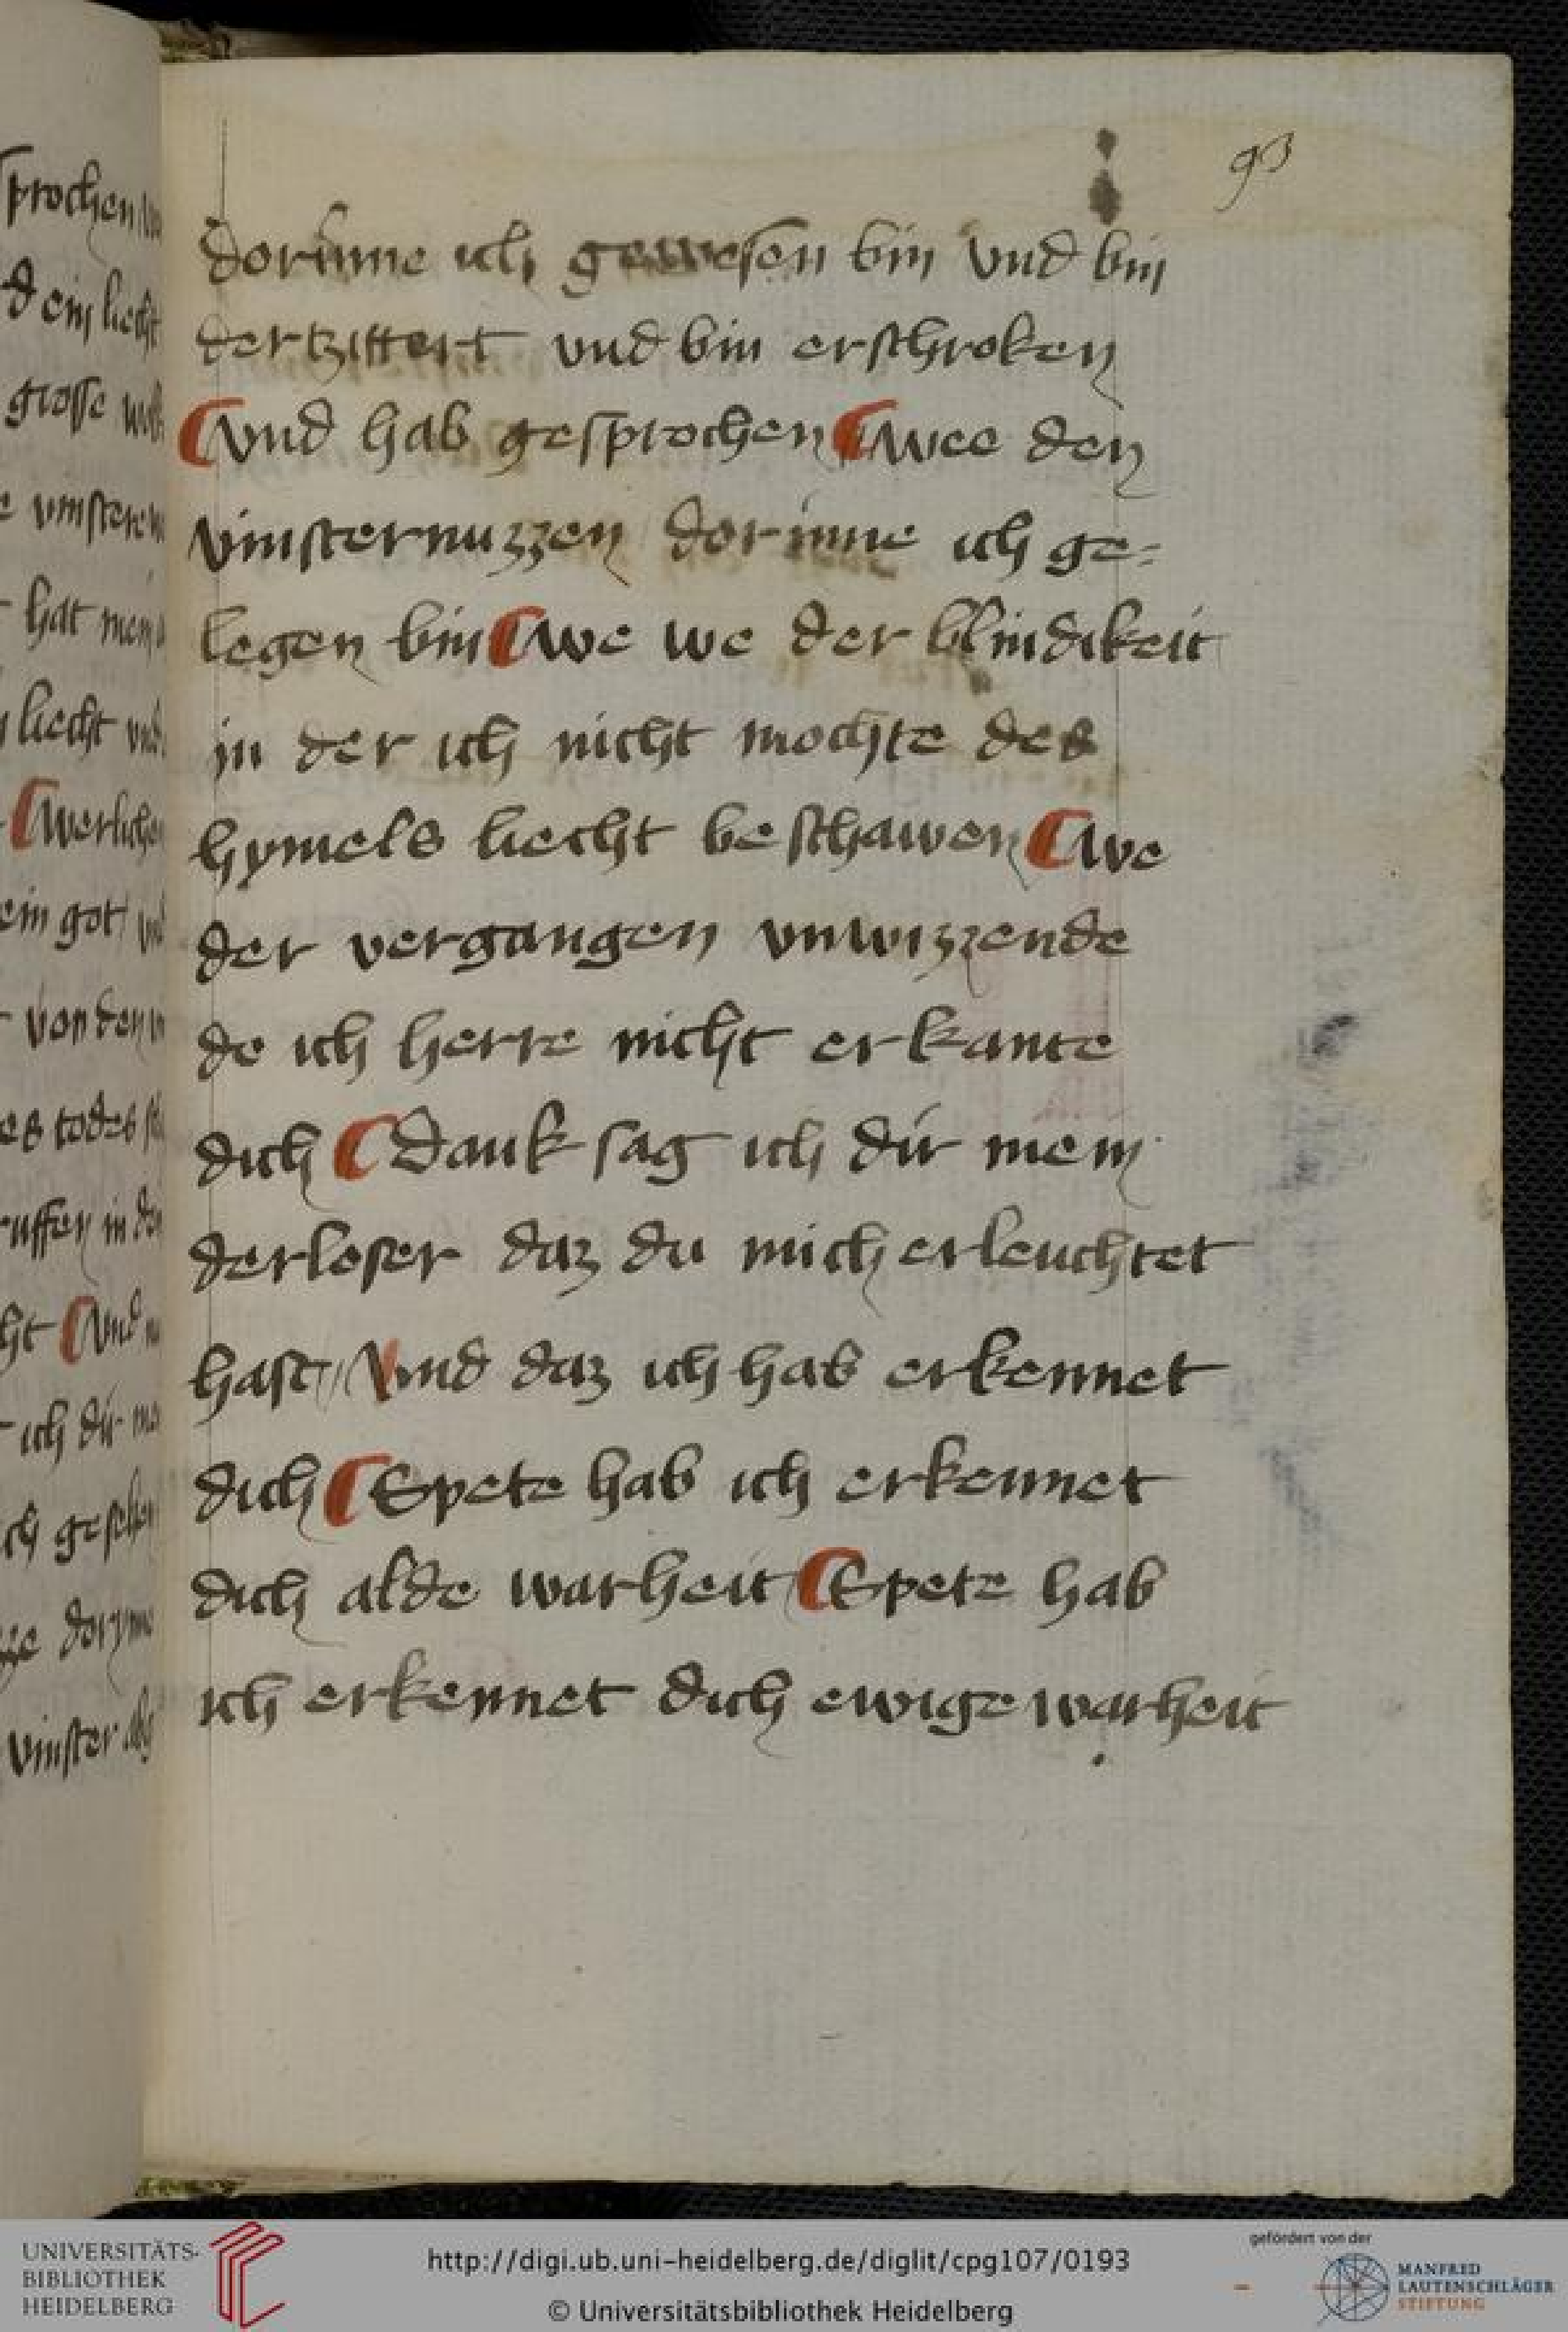 93
dorinne ich gewesen bin vnd bin
dertzittert vnd bin erschroken
vnd hab gesprochen wee den
vinsternuzzen dorinne ich ge=
legen bin we we der blindikeit
in der ich nicht mochte des
hymels liecht beschawen we
der vergangen vnwizzende
do ich herre nicht erkante
dich Dank sag ich dir mein
derloser daz du mich erleuchtet
hast Vnd daz ich hab erkennet
dich Spete hab ich erkennet
dich alde warheit Spete hab
ich erkennet dich ewige warheit
sprochen
d ein liecht
grosse
hat mein
liecht
werliche
ein got
von den
es todes
ruffen in
cht Vnd
ich dir
ich gesehen
vinster
UNIVERSITÄTS-
BIBLIOTHEK
HEIDELBERG
http://digi.ub.uni-heidelberg.de/diglit/cpg107/0193
© Universitätsbibliothek Heidelberg
gefördert von der
MANFRED
LAUTENSCHLÄGER
STIFTUNG